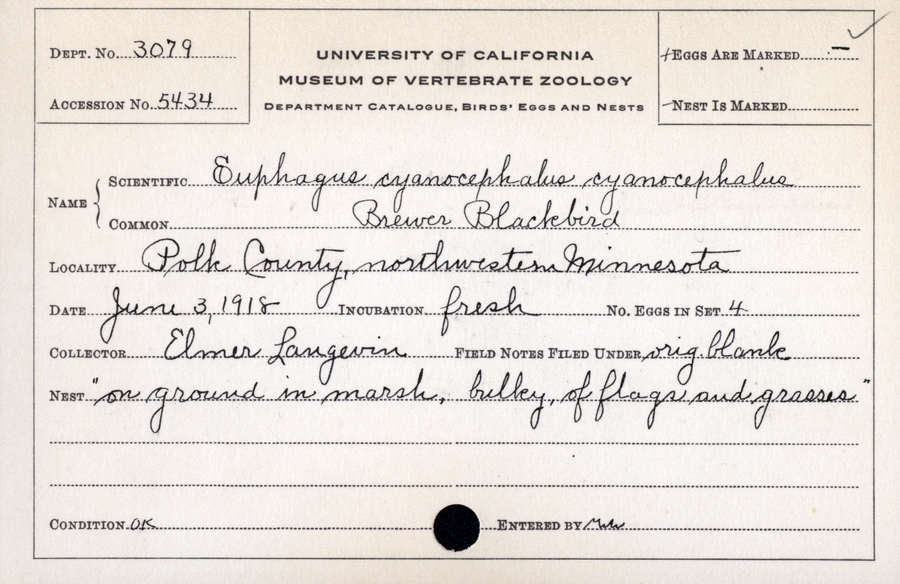 DEPT. No. 3079
ACCESSION No. 5434
UNIVERSITY OF CALIFORNIA
MUSEUM OF VERTEBRATE ZOOLOGY
DEPARTMENT CATALOGUE, BIRDS' EGGS AND NESTS
EGGS ARE MARKED —
NEST IS MARKED
NAME
SCIENTIFIC Euphagus cyanocephalus cyanocephalus
COMMON Brewer Blackbird
LOCALITY Polk County, northwestern Minnesota
DATE June 3, 1918 INCUBATION fresh No. EGGS IN SET 4
COLLECTOR Elmer Langevin FIELD NOTES FILED UNDER orig. blank
NEST "on ground in marsh, bulky, of flags and grasses"
CONDITION OK ENTERED BY